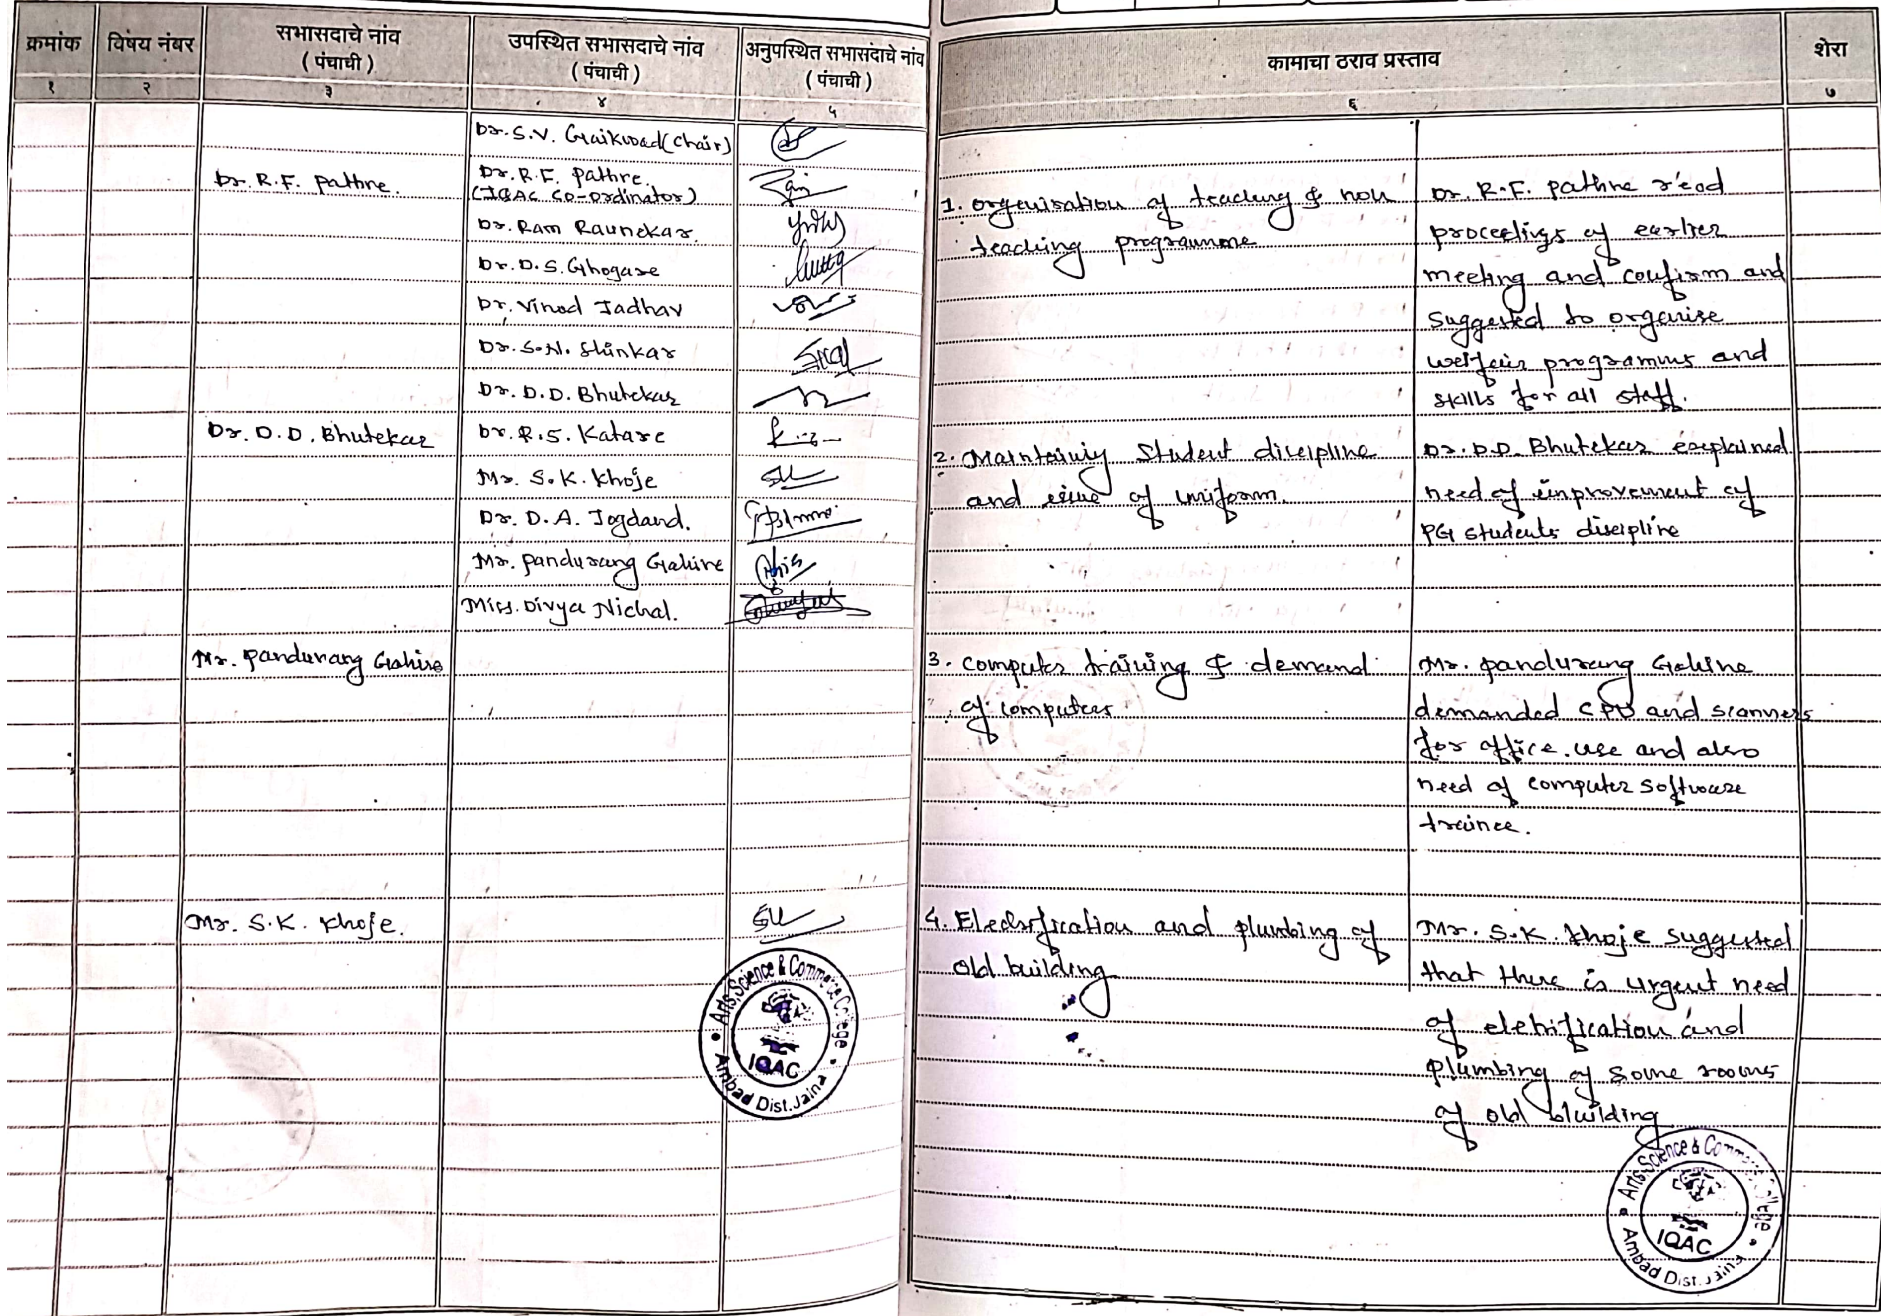 क्रमांक
१
विषय नंबर
२
सभासदाचे नांव
( पंचाची )
३
उपस्थित सभासदाचे नांव
( पंचाची )
४
अनुपस्थित सभासदाचे नांव
( पंचाची )
५
Dr. S.V. Gaikwad (Chair)
Dr. R.F. Pathre.
Dr. R.F. Pathre.
(IQAC Co-ordinator)
Dr. Ram Raunekar.
Dr. D.S. Ghogare
Dr. Vinod Jadhav
Dr. S.N. Shinkar
Dr. D.D. Bhutekar
Dr. D.D. Bhutekar
Dr. R.S. Katare
Mr. S.K. Khoje
Dr. D.A. Jogdand.
Mr. Pandurang Gahire
Miss. Divya Nichal.
Mr. Pandurang Gahire
Mr. S.K. Khoje.
Arts, Science & Commerce College
IQAC
Ambad Dist. Jalna
कामाचा ठराव प्रस्ताव
६
शेरा
७
1. Orgenisation of teaching & non
teaching programme
Dr. R.F. Pathre r'ead
proceetings of earlier
meeting and confirm and
suggested to organise
welfair programms and
skills for all staff.
2. Maintainig Student discipline
and of uniform.
Dr. D.D. Bhutekar explained
need of improvement of
PG students discipline
3. Computer training & demand
of computers
Mr. Pandurang Gahine
demanded CPU and scanners
for office use and also
need of computer software
trainee.
4. Eledrification and plumbing of
old building
Mr. S.K. Khoje suggested
that there is urgent need
of eletrification and
plumbing of some rooms
of old bluilding
Arts, Science & Commerce College
IQAC
Ambad Dist. Jalna